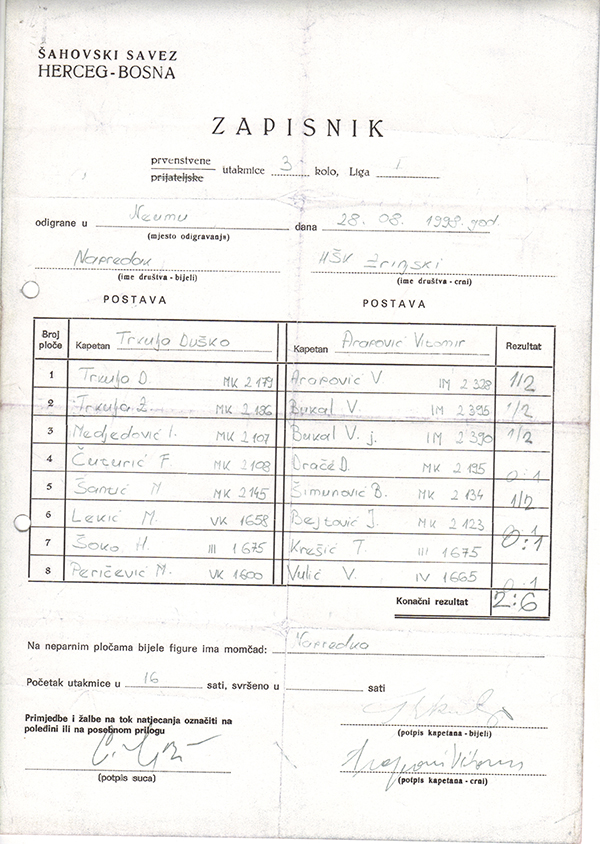 ŠAHOVSKI SAVEZ
HERCEG-BOSNA
ZAPISNIK
prvenstvene
prijateljske utakmice 3 kolo, Liga I
odigrane u Neumu dana 28. 08. 1998. god.
(mjesto odigravanja)
Napredak HŠK Zrinjski
(ime društva - bijeli) (ime društva - crni)
POSTAVA POSTAVA
Broj ploče Kapetan Trkulja Duško Kapetan Arapović Vitomir Rezultat
1 Trkulja D. MK 2179 Arapović V. IM 2328 1/2
2 Trkulja Ž. MK 2186 Bukal V. IM 2395 1/2
3 Medjedović I. MK 2107 Bukal V. j. IM 2390 1/2
4 Čuturić F. MK 2108 Dračé D. MK 2195 0:1
5 Šantić M MK 2145 Šimunović B. MK 2134 1/2
6 Lekić M. VK 1658 Bejtović J. MK 2123 0:1
7 Šoko H. III 1675 Krešić T. III 1675 0:1
8 Peričević M. VK 1600 Vulić V. IV 1665 0:1
Konačni rezultat 2:6
Na neparnim pločama bijele figure ima momčad: Napredka
Početak utakmice u 16 sati, svršeno u sati
Primjedbe i žalbe na tok natjecanja označiti na
poleđini ili na posebnom prilogu
(potpis kapetana - bijeli)
(potpis suca)
(potpis kapetana - crni)